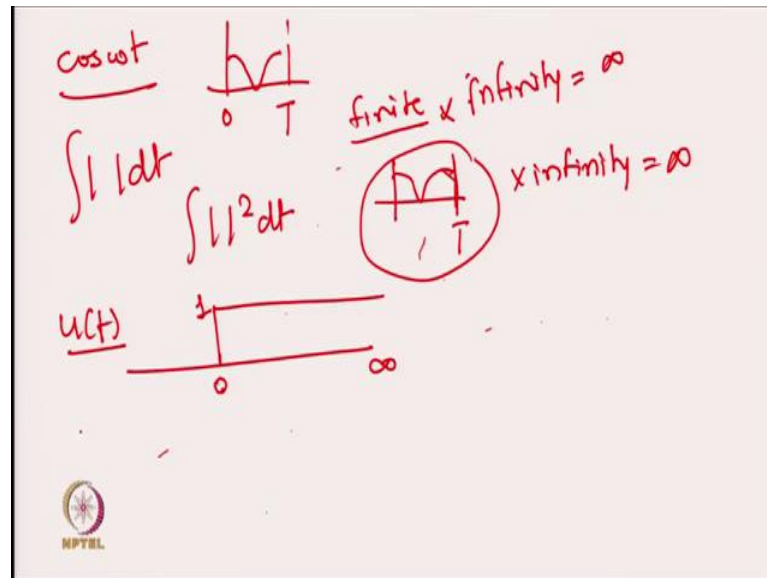 cos ωt
0 T
finite x infinity = ∞
∫| |dt
∫| |² dt
T
x infinity = ∞
u(t)
1
0
∞
NPTEL